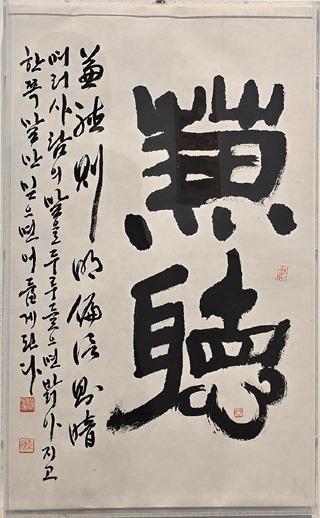 兼聽
兼聽則明偏信則暗
여러 사람의 말을 두루 들으면 밝아지고
한쪽 말만 믿으면 어둡게 된다